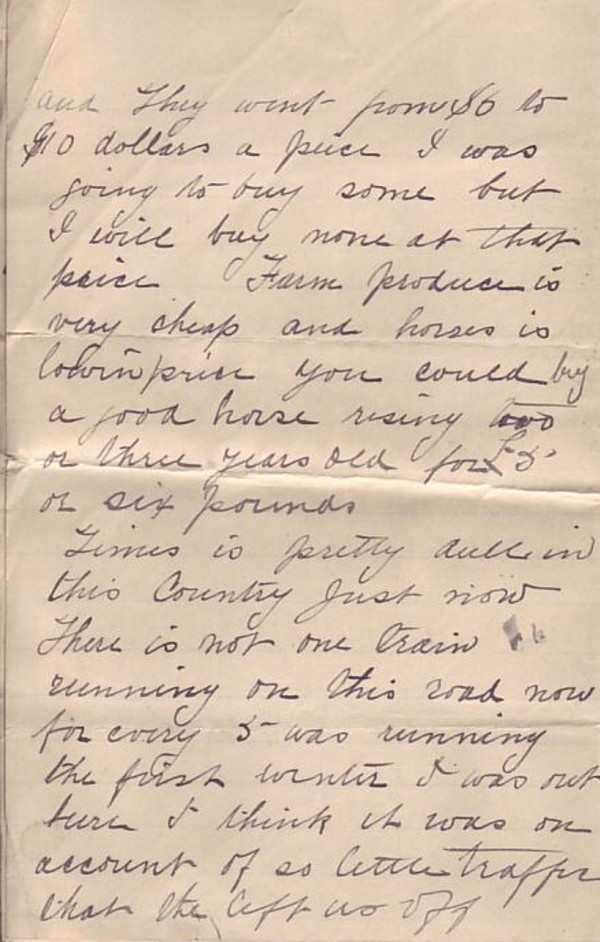 and they went from $6 to
$10 dollars a peice I was
going to buy some but
I will buy none at that
price Farm produce is
very cheap and horses is
low in price you could buy
a good horse rising two
or three years old for £5
or six pounds
Times is pretty dull in
this Country Just now
There is not one train
running on this road now
for every 5 was running
the first winter I was out
here I think it was on
account of so little traffic
that the left us off